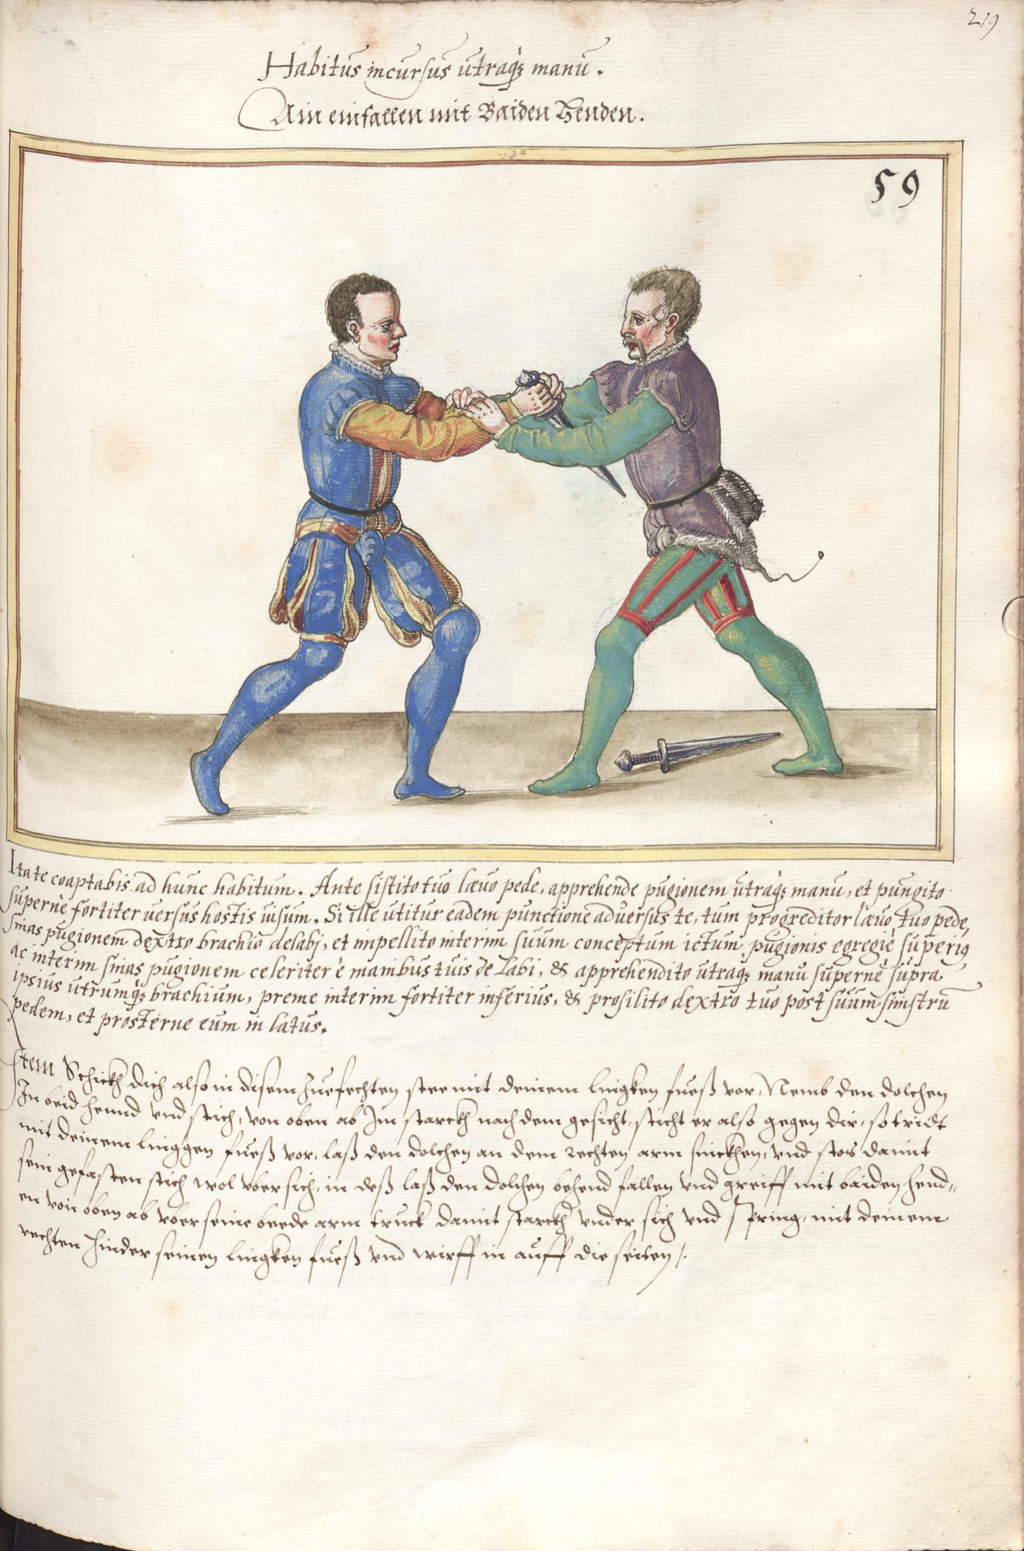 219
Habitus incursus utraq́; manu .
Ain einfallen mit Baiden Henden .
59
Ita te coaptabis ad hunc habitum . Ante sistito tuo lævo pede, apprehende pugionem utraq́; manu, et pungito
supernè fortiter versus hostis visum . Si ille utitur eadem punctione adversus te, tum progreditor lævo tuo pede,
sinas pugionem dextro brachio delabj, et impellito interim suum conceptum ictum pugionis egregiè superiq
ac interim sinas pugionem celeriter è manibus tuis de labi, & apprehendito utraq́; manu supernè supra
ipsius utrumq́; brachium, preme interim fortiter inferius, & prosilito dextro tuo post suum sinistrū
pedem, et prosterne eum in latus .
Item Schickh dich also in disem Zuefechten stee mit deinem lingken fueß vor, Nemb den dolchen
In beid hennd und stich, von oben ab Im starckh nach dem gesicht, sticht er also gegen dir, so tridt
mit deinem linggen fueß vor, laß den dolchen an dem rechten arm sinckhen, und stos damit
sein gefasten stich wol uber sich, in deß laß den dolchen behend fallen und greiff mit baiden hend„
en von oben ab uber seine beede arm truck damit starckh under sich und spring, mit deinem
rechten hinder seinen lingken fueß und wirff in auff die seiten /.